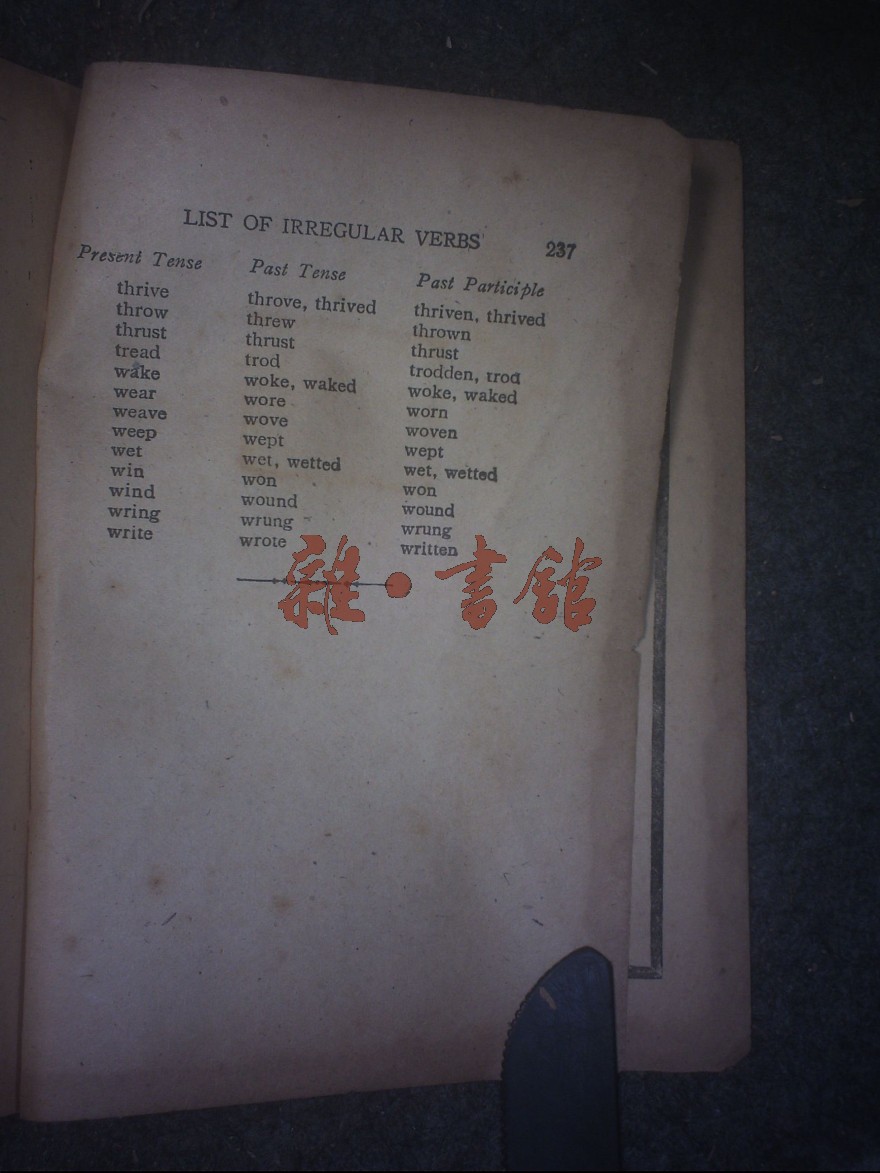 LIST OF IRREGULAR VERBS 237
Present Tense Past Tense Past Participle
thrive throve, thrived thriven, thrived
throw threw thrown
thrust thrust thrust
tread trod trodden, trod
wake woke, waked woke, waked
wear wore worn
weave wove woven
weep wept wept
wet wet, wetted wet, wetted
win won won
wind wound wound
wring wrung wrung
write wrote written
雜·書館